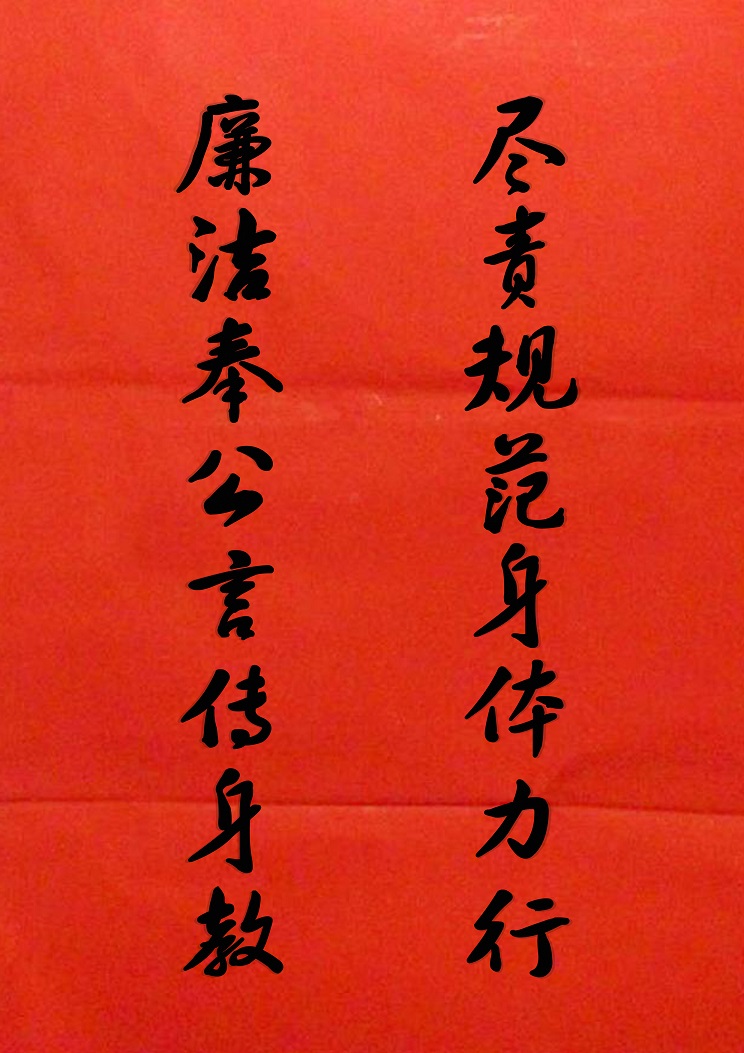 尽责规范身体力行
廉洁奉公言传身教